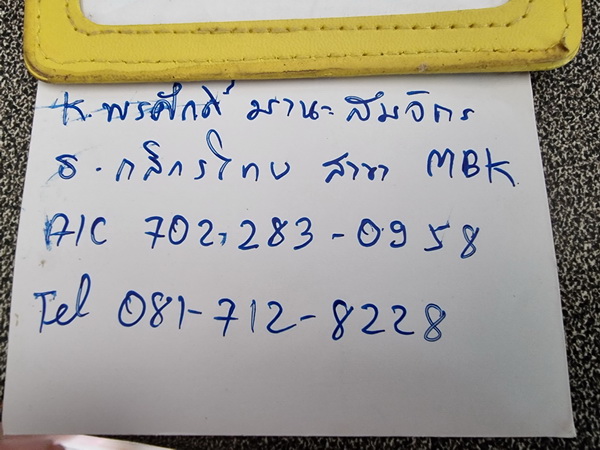 K. พรศักดิ์ มานะสมจิตร
ธ. กสิกรไทย สาขา MBK
A/C 702-283-0958
Tel 081-712-8228